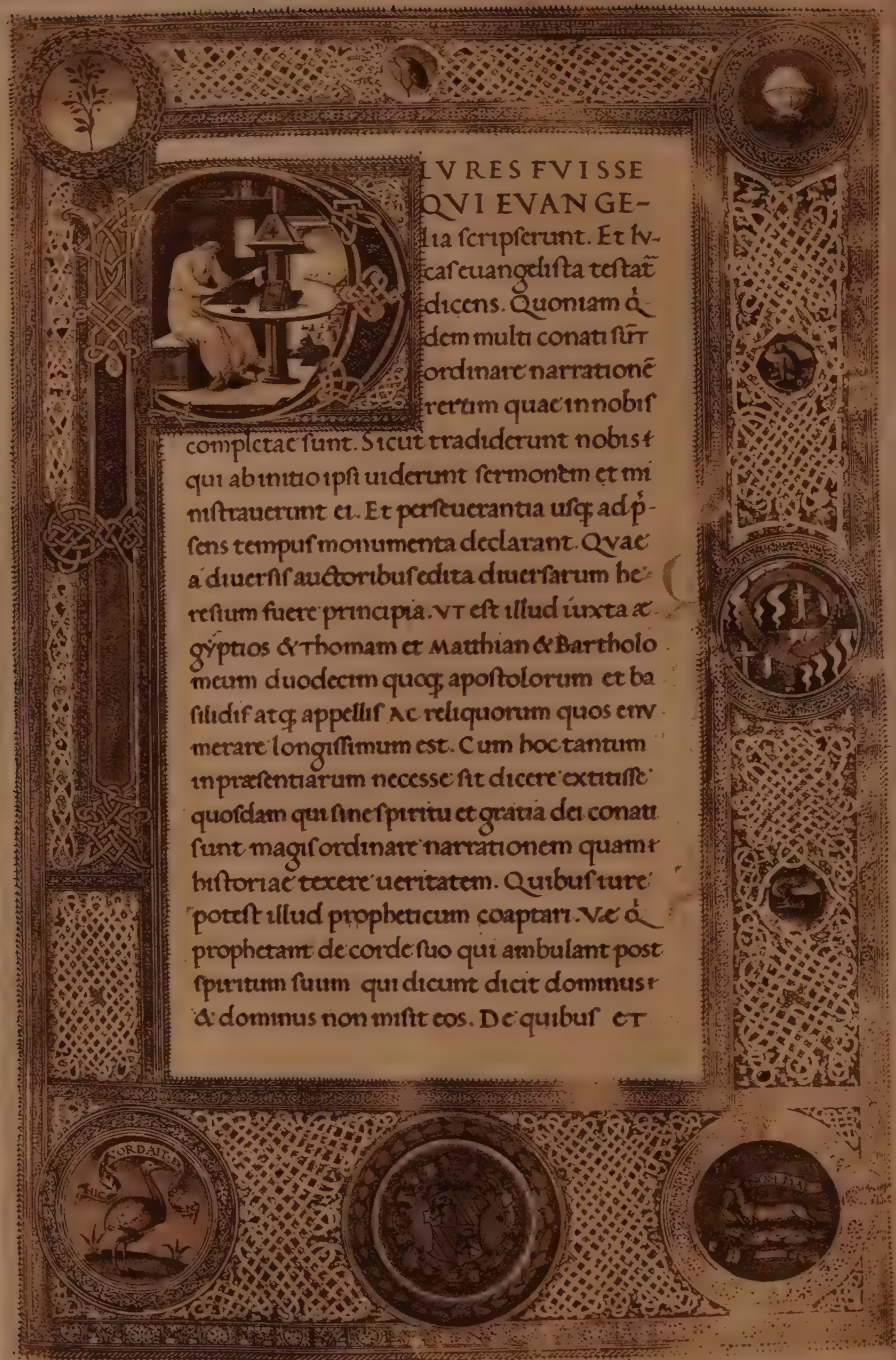 LVRES FVISSE
QVI EVANGE-
lia scripserunt. Et lv-
cas euangelista testat̄
dicens. Quoniam q̇
dem multi conati sūt
ordinare narrationē
rerum quae in nobis
completae sunt. Sicut tradiderunt nobis
qui ab initio ipsi uiderunt sermonem et mi
nistrauerunt ei. Et perseuerantia usq; ad p̄-
sens tempus monumenta declarant. Qvae
a diuersis auctoribus edita diuersarum he-
resium fuere principia. VT est illud iuxta æ-
gyptios & Thomam et Matthian & Bartholo
meum duodecim quoq; apostolorum et ba
silidis atq; appellis Ac reliquorum quos env
merare longissimum est. Cum hoc tantum
in præsentiarum necesse sit dicere extitisse
quosdam qui sine spiritu et gratia dei conati
sunt magis ordinare narrationem quam
historiae texere ueritatem. Quibus iure
potest illud propheticum coaptari. Væ q̇
prophetant de corde suo qui ambulant post
spiritum suum qui dicunt dicit dominus
& dominus non misit eos. De quibus et